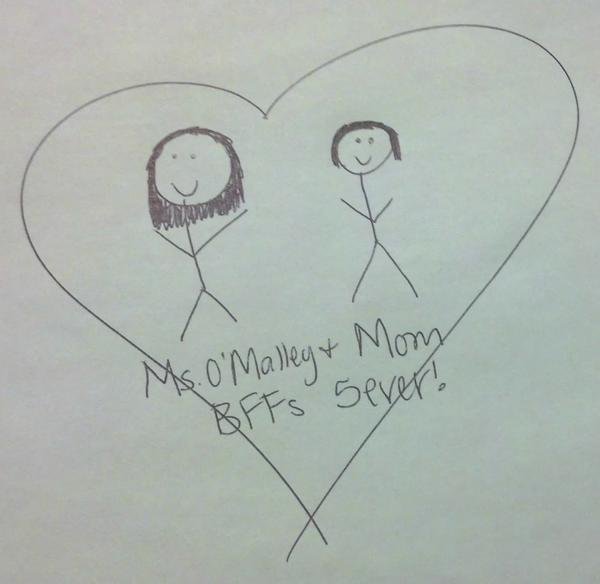 Ms. O'Malley + Mom
BFFs 5ever!